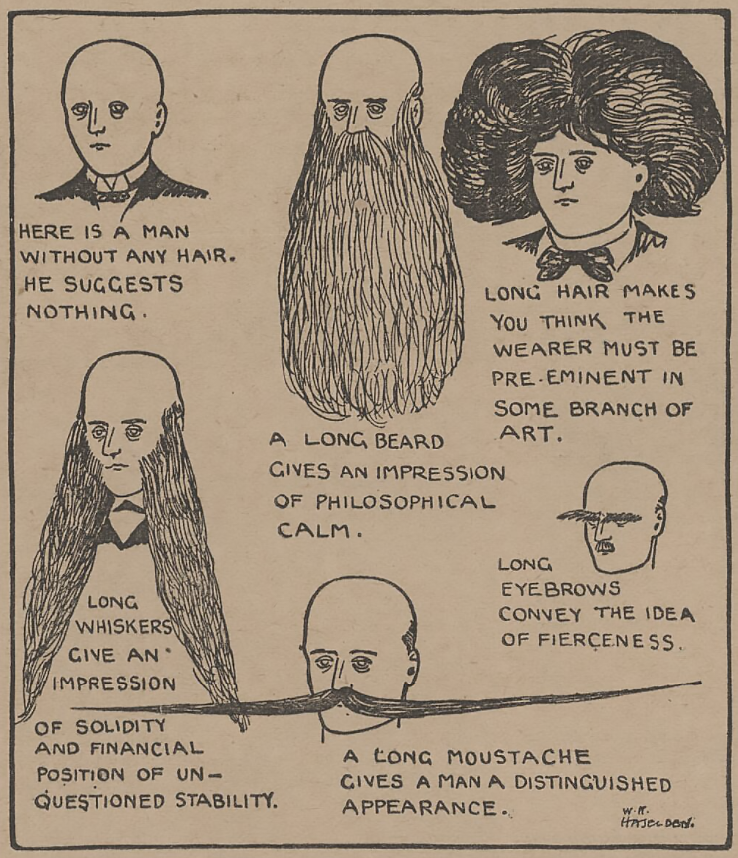 HERE IS A MAN
WITHOUT ANY HAIR.
HE SUGGESTS
NOTHING.
A LONG BEARD
GIVES AN IMPRESSION
OF PHILOSOPHICAL
CALM.
LONG HAIR MAKES
YOU THINK THE
WEARER MUST BE
PRE-EMINENT IN
SOME BRANCH OF
ART.
LONG
WHISKERS
GIVE AN
IMPRESSION
OF SOLIDITY
AND FINANCIAL
POSITION OF UN-
QUESTIONED STABILITY.
LONG
EYEBROWS
CONVEY THE IDEA
OF FIERCENESS.
A LONG MOUSTACHE
GIVES A MAN A DISTINGUISHED
APPEARANCE.
W.K.
HASELDEN.